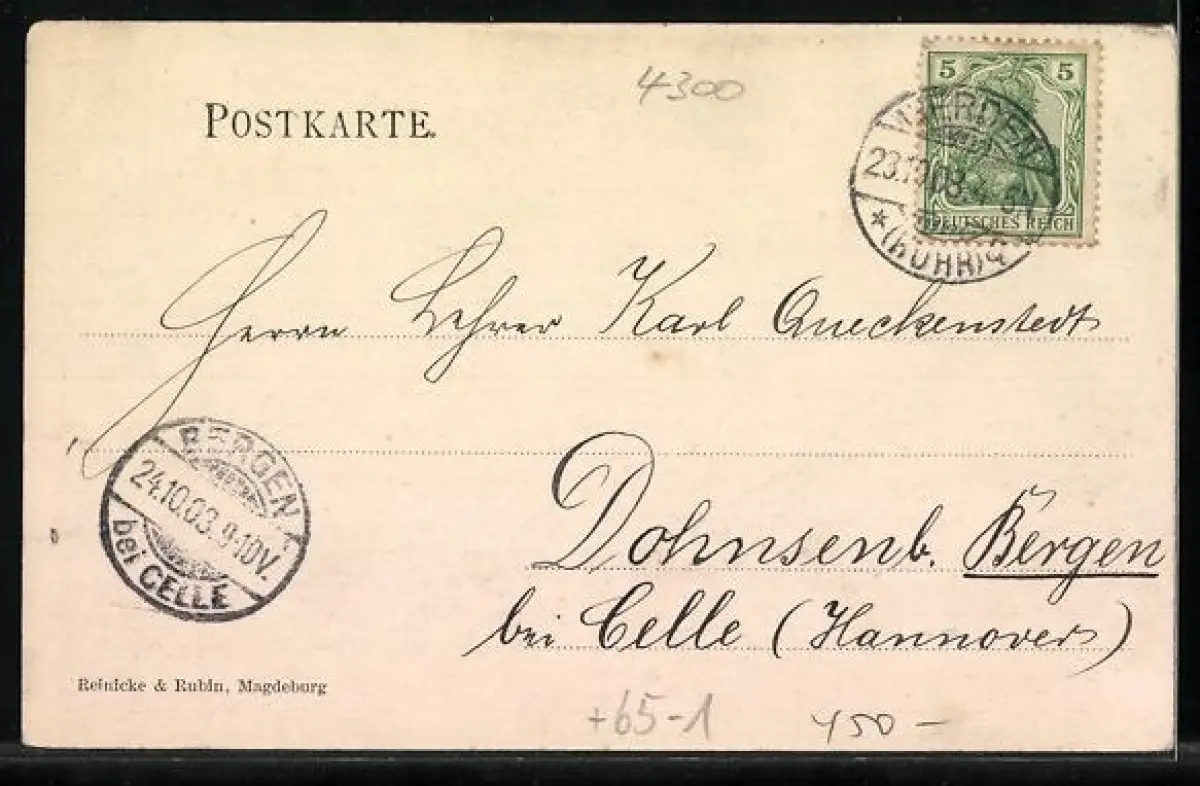 4300
POSTKARTE.
5 5
DEUTSCHES REICH
WERDEN
23.10.03.
* (RUHR)
Herrn Lehrer Karl Queckenstedt
BERGEN
24.10.03. 9-10V.
bei CELLE
Dohnsen b. Bergen
bei Celle (Hannover)
Reinicke & Rubin, Magdeburg
+65-1
450 –